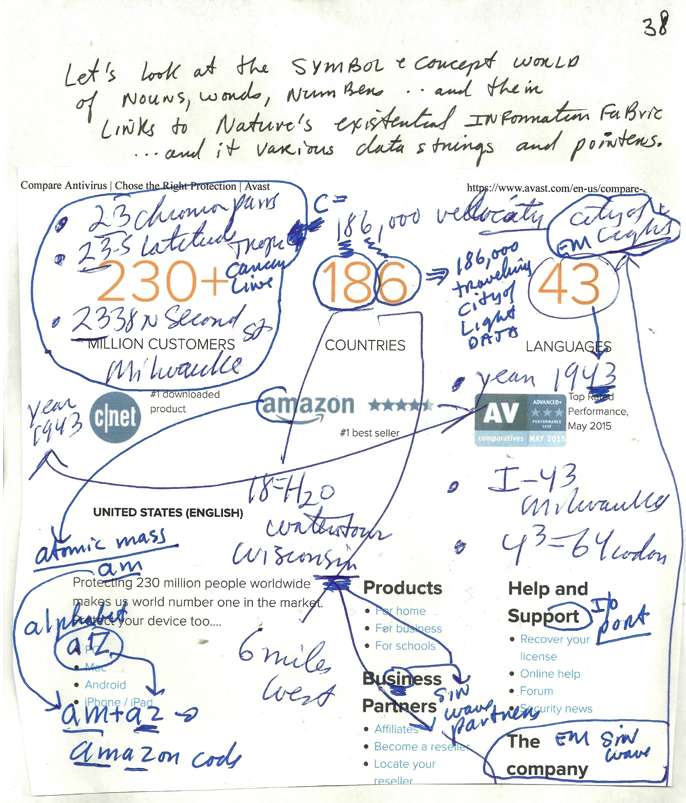 38
Let's look at the SYMBOL & concept WORLD
of NOUNS, words, NumBers .. and their
LINKS to Nature's existential INFORMATION FaBric
... and it various data strings and pointers.
Compare Antivirus | Chose the Right Protection | Avast
https://www.avast.com/en-us/compare-
• 23 chromo pairs
C=
186,000 vellocity
city of
EM Lights
• 23.5 Latitude Tropic
Cancer
Line
230+
186
⇒ 186,000
traveling
city of
Light
DATA
43
• 2338 N Second St
Milwaukee
MILLION CUSTOMERS
COUNTRIES
LANGUAGES
• year 1943
year
1943
c|net
#1 downloaded
product
amazon
#1 best seller
AV
comparatives
ADVANCED+
PERFORMANCE
TEST
MAY 2015
Top Rated
Performance,
May 2015
18=H2O
watertour
Wisconsin
• I-43
Milwaukee
• 4³=64 codon
UNITED STATES (ENGLISH)
atomic mass
am
Protecting 230 million people worldwide
makes us world number one in the market.
Protect your device too....
alphabet
aZ
• PC
• Mac
• Android
• iPhone / iPad
am+az
amazon code
6 miles
west
Products
• For home
• For business
• For schools
Business
Partners
sin
wave
partners
• Affiliates
• Become a reseller
• Locate your
reseller
Help and
Support
I/o
port
• Recover your
license
• Online help
• Forum
• Security news
The
company
EM Sin
wave